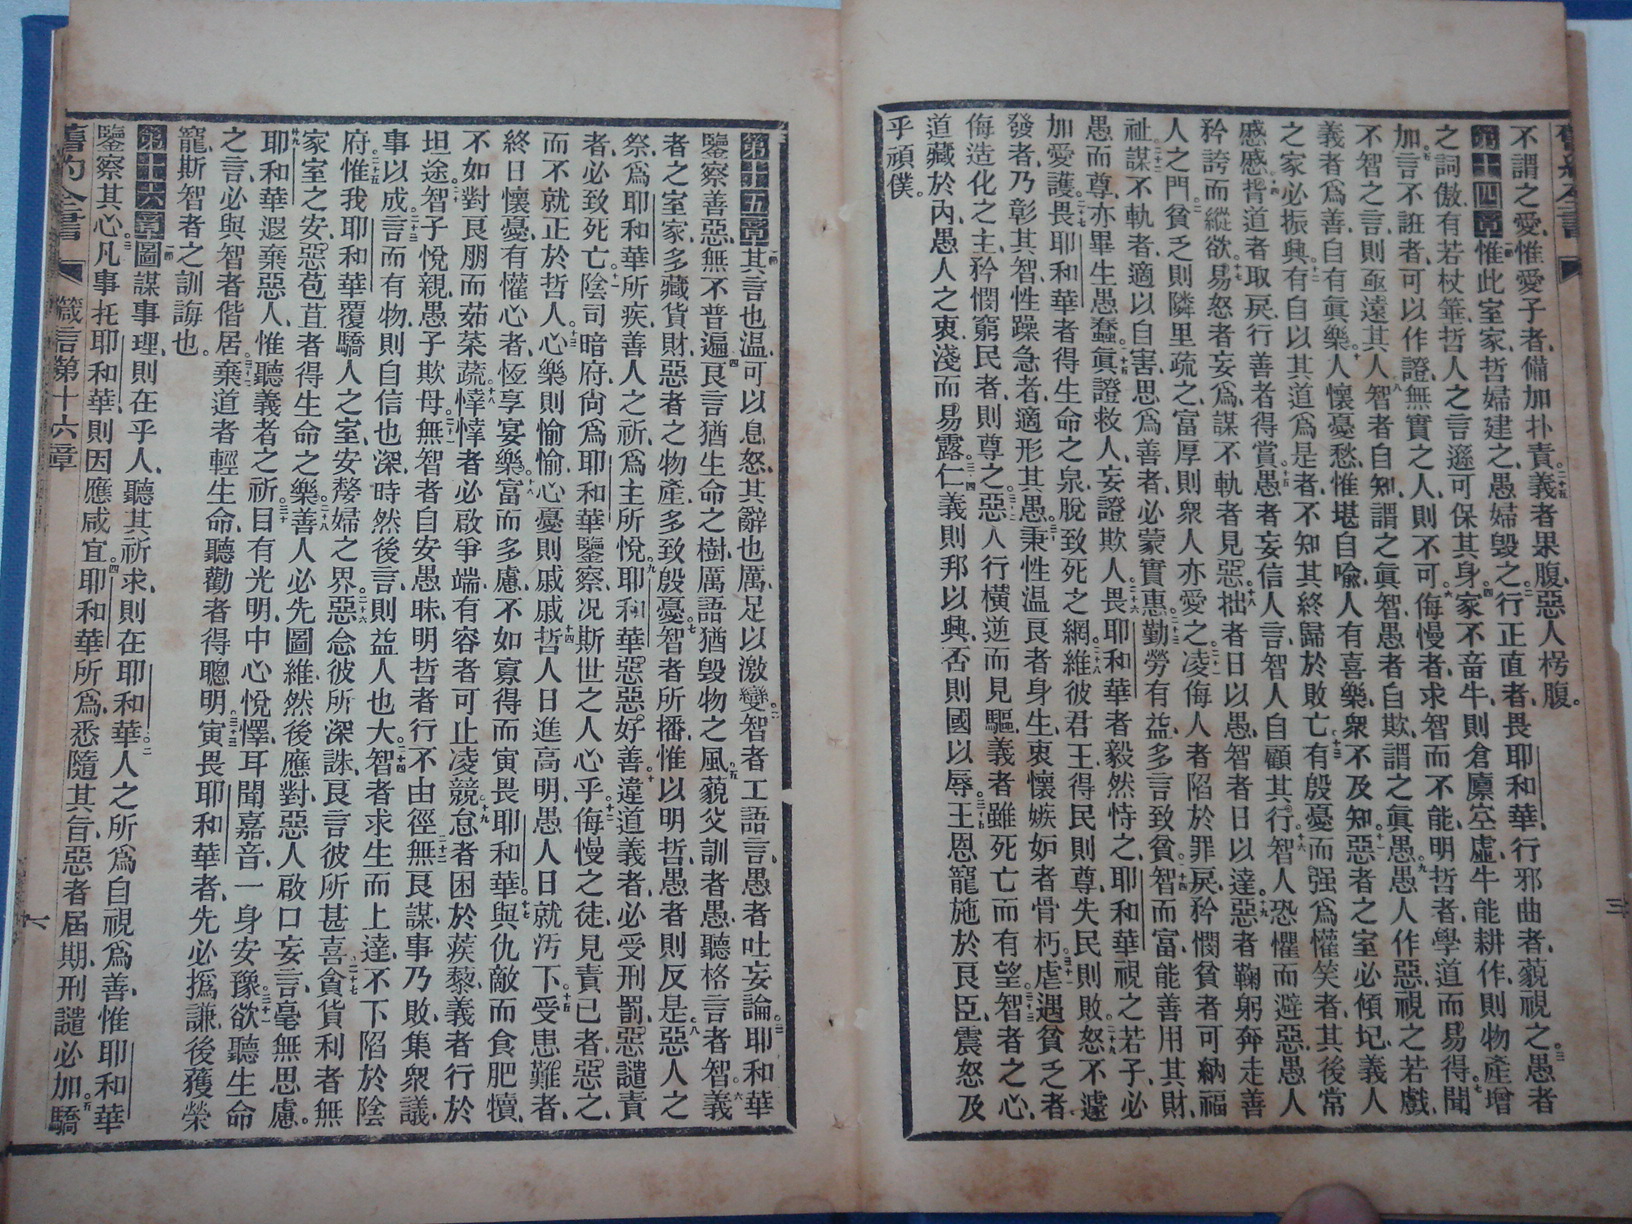 不謂之愛、惟愛子者、備加扑責、二十五義者果腹、惡人枵腹。
第十四章一節惟此室家、哲婦建之、愚婦毀之、二行正直者、畏耶和華、行邪曲者、藐視之、三愚者
之詞傲、有若杖箠、哲人之言遜、可保其身、四家不畜牛、則倉廩空虛、牛能耕作、則物產增
加、五言不誑者、可以作證、無實之人、則不可、六侮慢者、求智而不能、明哲者、學道而易得、七聞
不智之言、則亟遠其人、八智者自知、謂之眞智、愚者自欺、謂之眞愚、九愚人作惡、視之若戲、
義者爲善、自有眞樂、十人懷憂愁、惟堪自喩、人有喜樂、衆不及知、十一惡者之室必傾圮、義人
之家必振興、十二有自以其道爲是者、不知其終歸於敗亡、十三有殷憂而强爲懽笑者、其後常
慼慼、十四背道者取戾、行善者得賞、十五愚者妄信人言、智人自顧其行、十六智人恐懼而避惡、愚人
矜誇而縱欲、十七易怒者妄爲、謀不軌者見惡、十八拙者日以愚、智者日以達、十九惡者鞠躬、奔走善
人之門、二十貧乏則隣里疏之、富厚則衆人亦愛之、二十一凌侮人者陷於罪戾、矜憫貧者可納福
祉、二十二謀不軌者、適以自害、思爲善者、必蒙實惠、二十三勤勞有益、多言致貧、二十四智而富、能善用其財、
愚而尊、亦畢生愚蠢、二十五眞證救人、妄證欺人、二十六畏耶和華者、毅然恃之、耶和華視之若子、必
加愛護、二十七畏耶和華者得生命之泉、脫致死之網、二十八維彼君王、得民則尊、失民則敗、二十九怒不遽
發者、乃彰其智、性躁急者、適形其愚、三十秉性溫良者身生、衷懷嫉妒者骨朽、三十一虐遇貧乏者、
侮造化之主、矜憫窮民者、則尊之、三十二惡人行橫逆而見驅、義者雖死亡而有望、三十三智者之心、
道藏於內、愚人之衷、淺而易露、三十四仁義則邦以興、否則國以辱、三十五王恩寵施於良臣、震怒及
乎頑僕。
三
第十五章一節其言也温、可以息怒、其辭也厲、足以激變、二智者工語言、愚者吐妄論、三耶和華
鑒察善惡、無不普遍、四良言猶生命之樹、厲語猶毀物之風、五藐父訓者愚、聽格言者智、六義
者之室家、多藏貨財、惡者之物產、多致殷憂、七智者所播、惟以明哲、愚者則反是、八惡人之
祭、爲耶和華所疾、善人之祈、爲主所悅、九耶和華惡惡好善、十違道義者、必受刑罰、惡譴責
者、必致死亡、十一陰司暗府、尙爲耶和華鑒察、况斯世之人心乎、十二侮慢之徒、見責己者、惡之
而不就正於哲人、十三心樂則愉愉、心憂則戚戚、十四哲人日進高明、愚人日就汚下、十五受患難者、
終日懷憂、有懽心者、恆享宴樂、十六富而多慮、不如寡得而寅畏耶和華、十七與仇敵而食肥犢、
不如對良朋而茹菜蔬、十八悻悻者必啟爭端、有容者可止凌競、十九怠者困於蒺藜、義者行於
坦途、二十智子悅親、愚子欺母、二十一無智者自安愚昧、明哲者行不由徑、二十二無良謀、事乃敗、集衆議、
事以成、二十三言而有物、則自信也深、時然後言、則益人也大、二十四智者求生而上達、不下陷於陰
府、二十五惟我耶和華覆驕人之室、安嫠婦之界、二十六惡念彼所深誅、良言彼所甚喜、二十七貪貨利者無
家室之安、惡苞苴者得生命之樂、二十八善人必先圖維、然後應對、惡人啟口妄言、毫無思慮。
二十九耶和華遐棄惡人、惟聽義者之祈、三十目有光明、中心悅懌、耳聞嘉音、一身安豫、三十一欲聽生命
之言、必與智者偕居、三十二棄道者輕生命、聽勸者得聰明、三十三寅畏耶和華者、先必撝謙、後獲榮
寵、斯智者之訓誨也。
第十六章一節圖謀事理、則在乎人、聽其祈求、則在耶和華、二人之所爲、自視爲善、惟耶和華
鑒察其心、三凡事托耶和華、則因應咸宜、四耶和華所爲、悉隨其旨、惡者屆期、刑譴必加、五驕
舊約全書 箴言第十六章 六